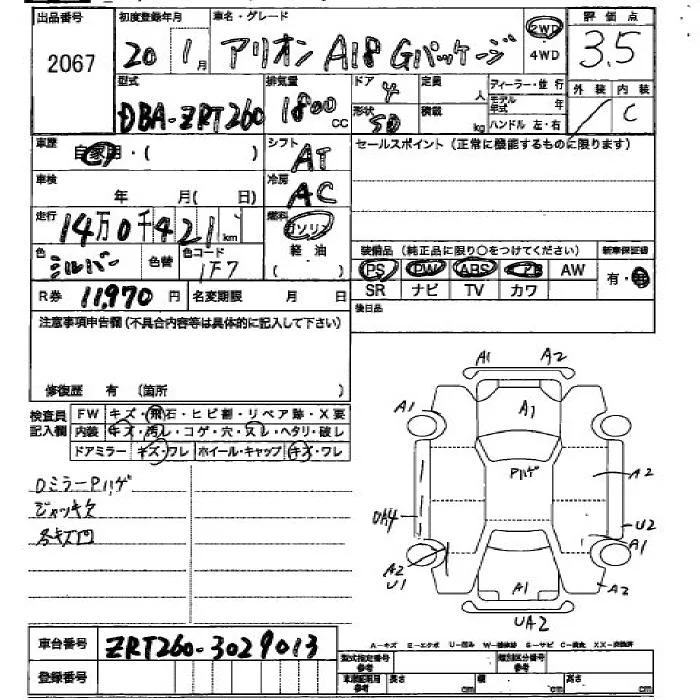 出品番号 初度登録年月 車名・グレード 評価点
2067 20年 1月 アリオン A18 Gパッケージ 2WD 4WD 3.5
型式 排気量 ドア 定員 ディーラー・並行 外装 内装
DBA-ZRT260 1800cc 4 人 モデル年式 年 / C
形状 積載 ハンドル 左・右
5D kg
車歴 自家用・( ) シフト AT セールスポイント (正常に機能するものに限ります)
車検 年 月(日) 冷房 AC
走行 14万0千421km 燃料 ガソリン
軽油
色 シルバー 色替 色コード 1F7 装備品 (純正品に限り○をつけてください) 新車保証書
PS PW ABS AB AW 有・無
R券 11,970円 名変期限 月 日 SR ナビ TV カワ
注意事項申告欄(不具合内容等は具体的に記入して下さい) 後日品
修復歴 有 (箇所 )
検査員記入欄 FW キズ・飛石・ヒビ割・リペア跡・X要
内装 キズ・汚レ・コゲ・穴・スレ・ヘタリ・破レ
ドアミラー キズ・ワレ ホイール・キャップ キズ・ワレ
Dミラー Pハゲ
ジャッキ欠
各キズ凹
A1 A2
A1 A1
Pハゲ
A2
UA4 U2
A1
A2
U1 A1 A2
UA2
A-キズ E-エクボ U-凹み W-補修跡 S-サビ C-腐食 XX-交換済
車台番号 ZRT260-3029013
型式指定番号 参考 類別区分番号 参考
登録番号 車検証明用参考 長さ cm 幅 cm 高さ cm